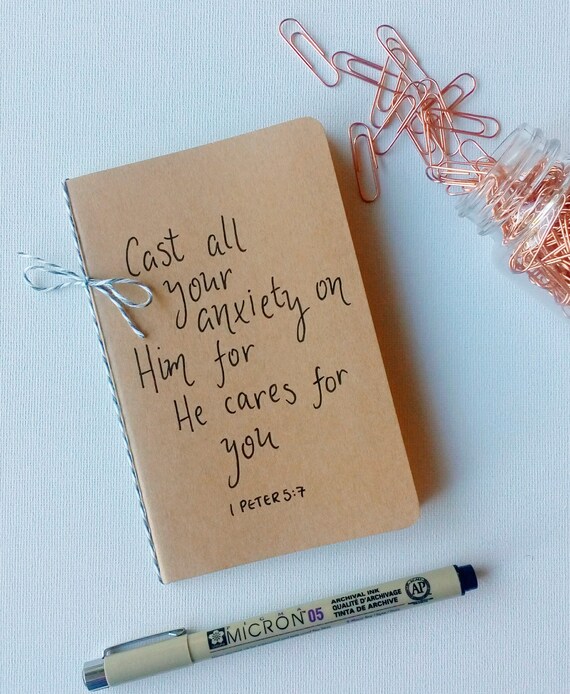 Cast all
your
anxiety on
Him for
He cares for
you
1 PETER 5:7
MICRON 05
ARCHIVAL INK
QUALITÉ D'ARCHIVAGE
TINTA DE ARCHIVE
AP